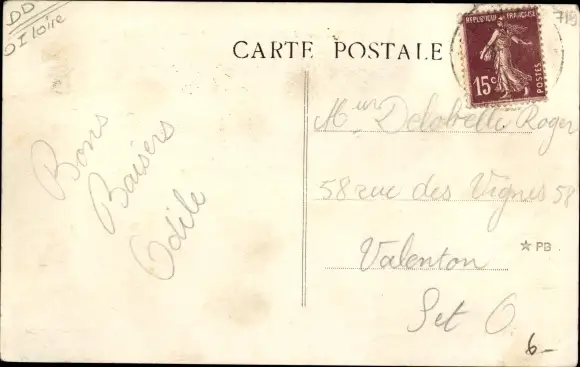 DD
D I loire
CARTE POSTALE
REPUBLIQUE FRANÇAISE
15c
POSTES
719
Bons
Baisers
Odile
Mur Delabelle Roger
58 rue des Vignes 58
Valenton
PB
Set O
6-